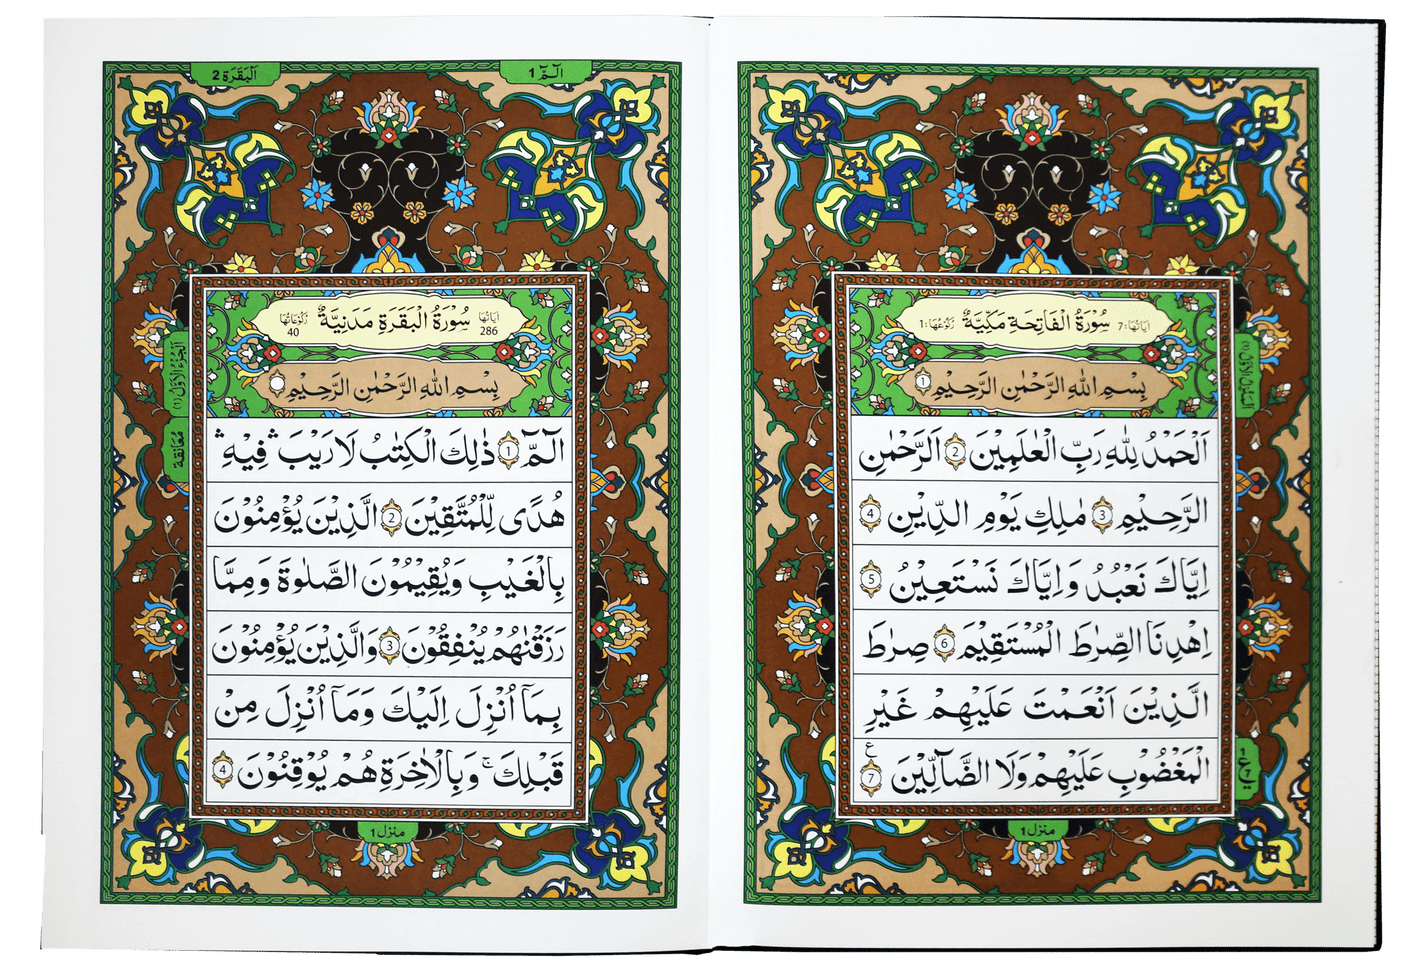 سُوْرَةُ الْفَاتِحَةِ مَكِّيَّةٌ
اٰيَاتُهَا: 7
رُكُوْعُهَا: 1
بِسْمِ اللّٰهِ الرَّحْمٰنِ الرَّحِيْمِ 1
اَلْحَمْدُ لِلّٰهِ رَبِّ الْعٰلَمِيْنَ 2 اَلرَّحْمٰنِ
الرَّحِيْمِ 3 مٰلِكِ يَوْمِ الدِّيْنِ 4
اِيَّاكَ نَعْبُدُ وَاِيَّاكَ نَسْتَعِيْنُ 5
اِهْدِنَا الصِّرٰطَ الْمُسْتَقِيْمَ 6 صِرٰطَ
الَّذِيْنَ اَنْعَمْتَ عَلَيْهِمْ غَيْرِ
الْمَغْضُوْبِ عَلَيْهِمْ وَلَا الضَّآلِّيْنَ 7 ع
منزل 1
اَلْبَقَرَة 2
الٓمّٓ 1
سُوْرَةُ الْبَقَرَةِ مَدَنِيَّةٌ
اٰيَاتُهَا 286
رُكُوْعَاتُهَا 40
بِسْمِ اللّٰهِ الرَّحْمٰنِ الرَّحِيْمِ
الٓمّٓ 1 ذٰلِكَ الْكِتٰبُ لَا رَيْبَ ۛ فِيْهِ ۛ
هُدًى لِّلْمُتَّقِيْنَ 2 الَّذِيْنَ يُؤْمِنُوْنَ
بِالْغَيْبِ وَيُقِيْمُوْنَ الصَّلٰوةَ وَمِمَّا
رَزَقْنٰهُمْ يُنْفِقُوْنَ 3 وَالَّذِيْنَ يُؤْمِنُوْنَ
بِمَآ اُنْزِلَ اِلَيْكَ وَمَآ اُنْزِلَ مِنْ
قَبْلِكَ ۚ وَبِالْاٰخِرَةِ هُمْ يُوْقِنُوْنَ 4
اَلْجُزْءُ الْاَوَّلُ (1)
مُعَانقة
منزل 1